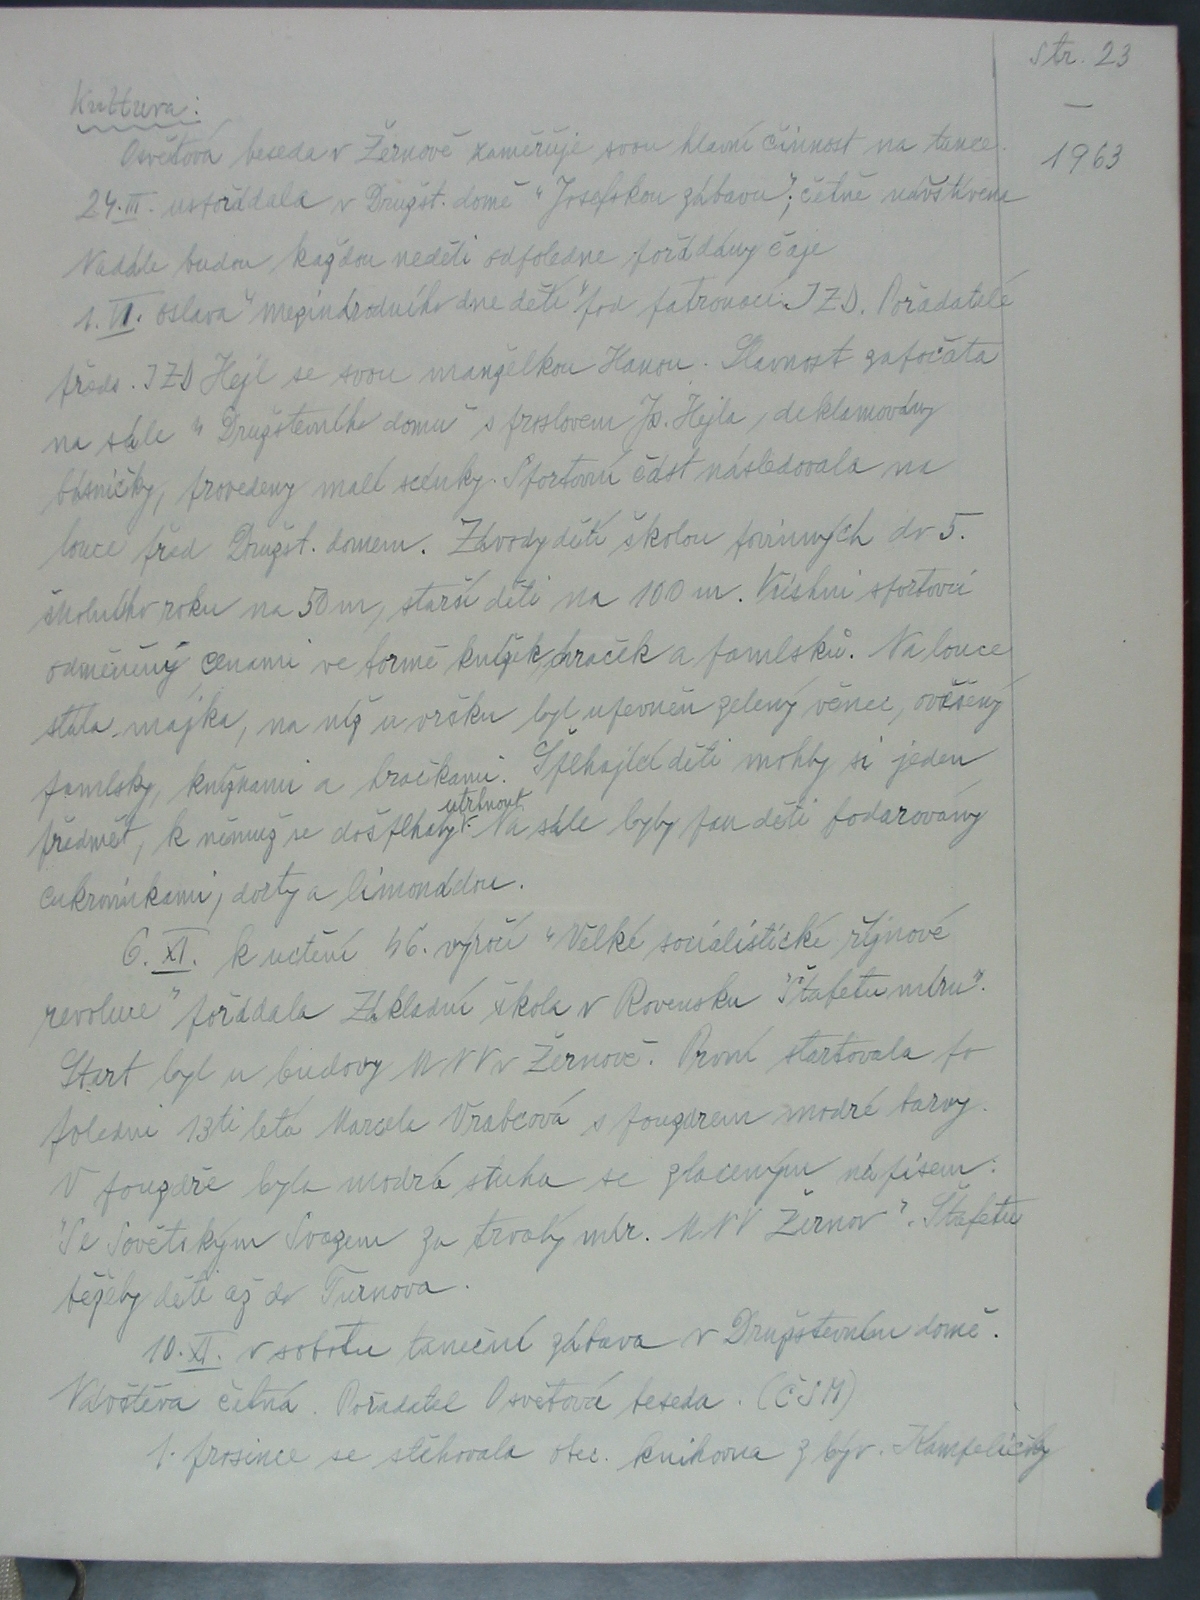 str. 23
—
1963
Kultura:
Osvětová beseda v Žernově zaměřuje svou hlavní činnost na tance.
24.III. uspořádala v Družst. domě "Josefskou zábavu"; četně navštívene
Nadále budou každou neděli odpoledne pořádány čaje
1. VI. oslava "mezinárodního dne dětí" pod patronací JZD. Pořadatelé
předs. JZD Hejl se svou manželkou Hanou. Slavnost započata
na sále "Družstevního domu s proslovem Js. Hejla, deklamovány
básničky, provedeny malé scénky. Sportovní část následovala na
louce před Družst. domem. Závody dětí školou povinných do 5.
školního roku na 50 m, starší děti na 100 m. Všichni sportovci
odměněný cenami ve formě knížek, hraček a pamlsků. Na louce
stála májka, na níž u vršku byl upevněn zelený věnec, ověšený
pamlsky, knížkami a hračkami. Šplhající děti mohly si jeden
předmět, k němuž se došplhaly utrhnout. Na sále byly pan děti podarovány
cukrovinkami, dorty a limonádou.
6. XI. k uctění 46. výročí "Velké socialistické říjnové
revoluce" pořádala Základní škola v Rovensku "Štafetu míru".
Start byl u budovy MNV v Žernově. První startovala po
poledni 13ti letá Marcela Vrabcová s pouzdrem modré barvy.
V pouzdře byla modrá stuha se zlaceným nápisem:
"Se Sovětským Svazem za trvalý mír. MNV Žernov". Štafetu
běžely děti až do Turnova.
10. XI. v sobotu taneční zábava v Družstevním domě.
Návštěva četná. Pořadatel Osvětová beseda. (ČSM)
1. prosince se stěhovala obec. knihovna z býv. Kampeličky